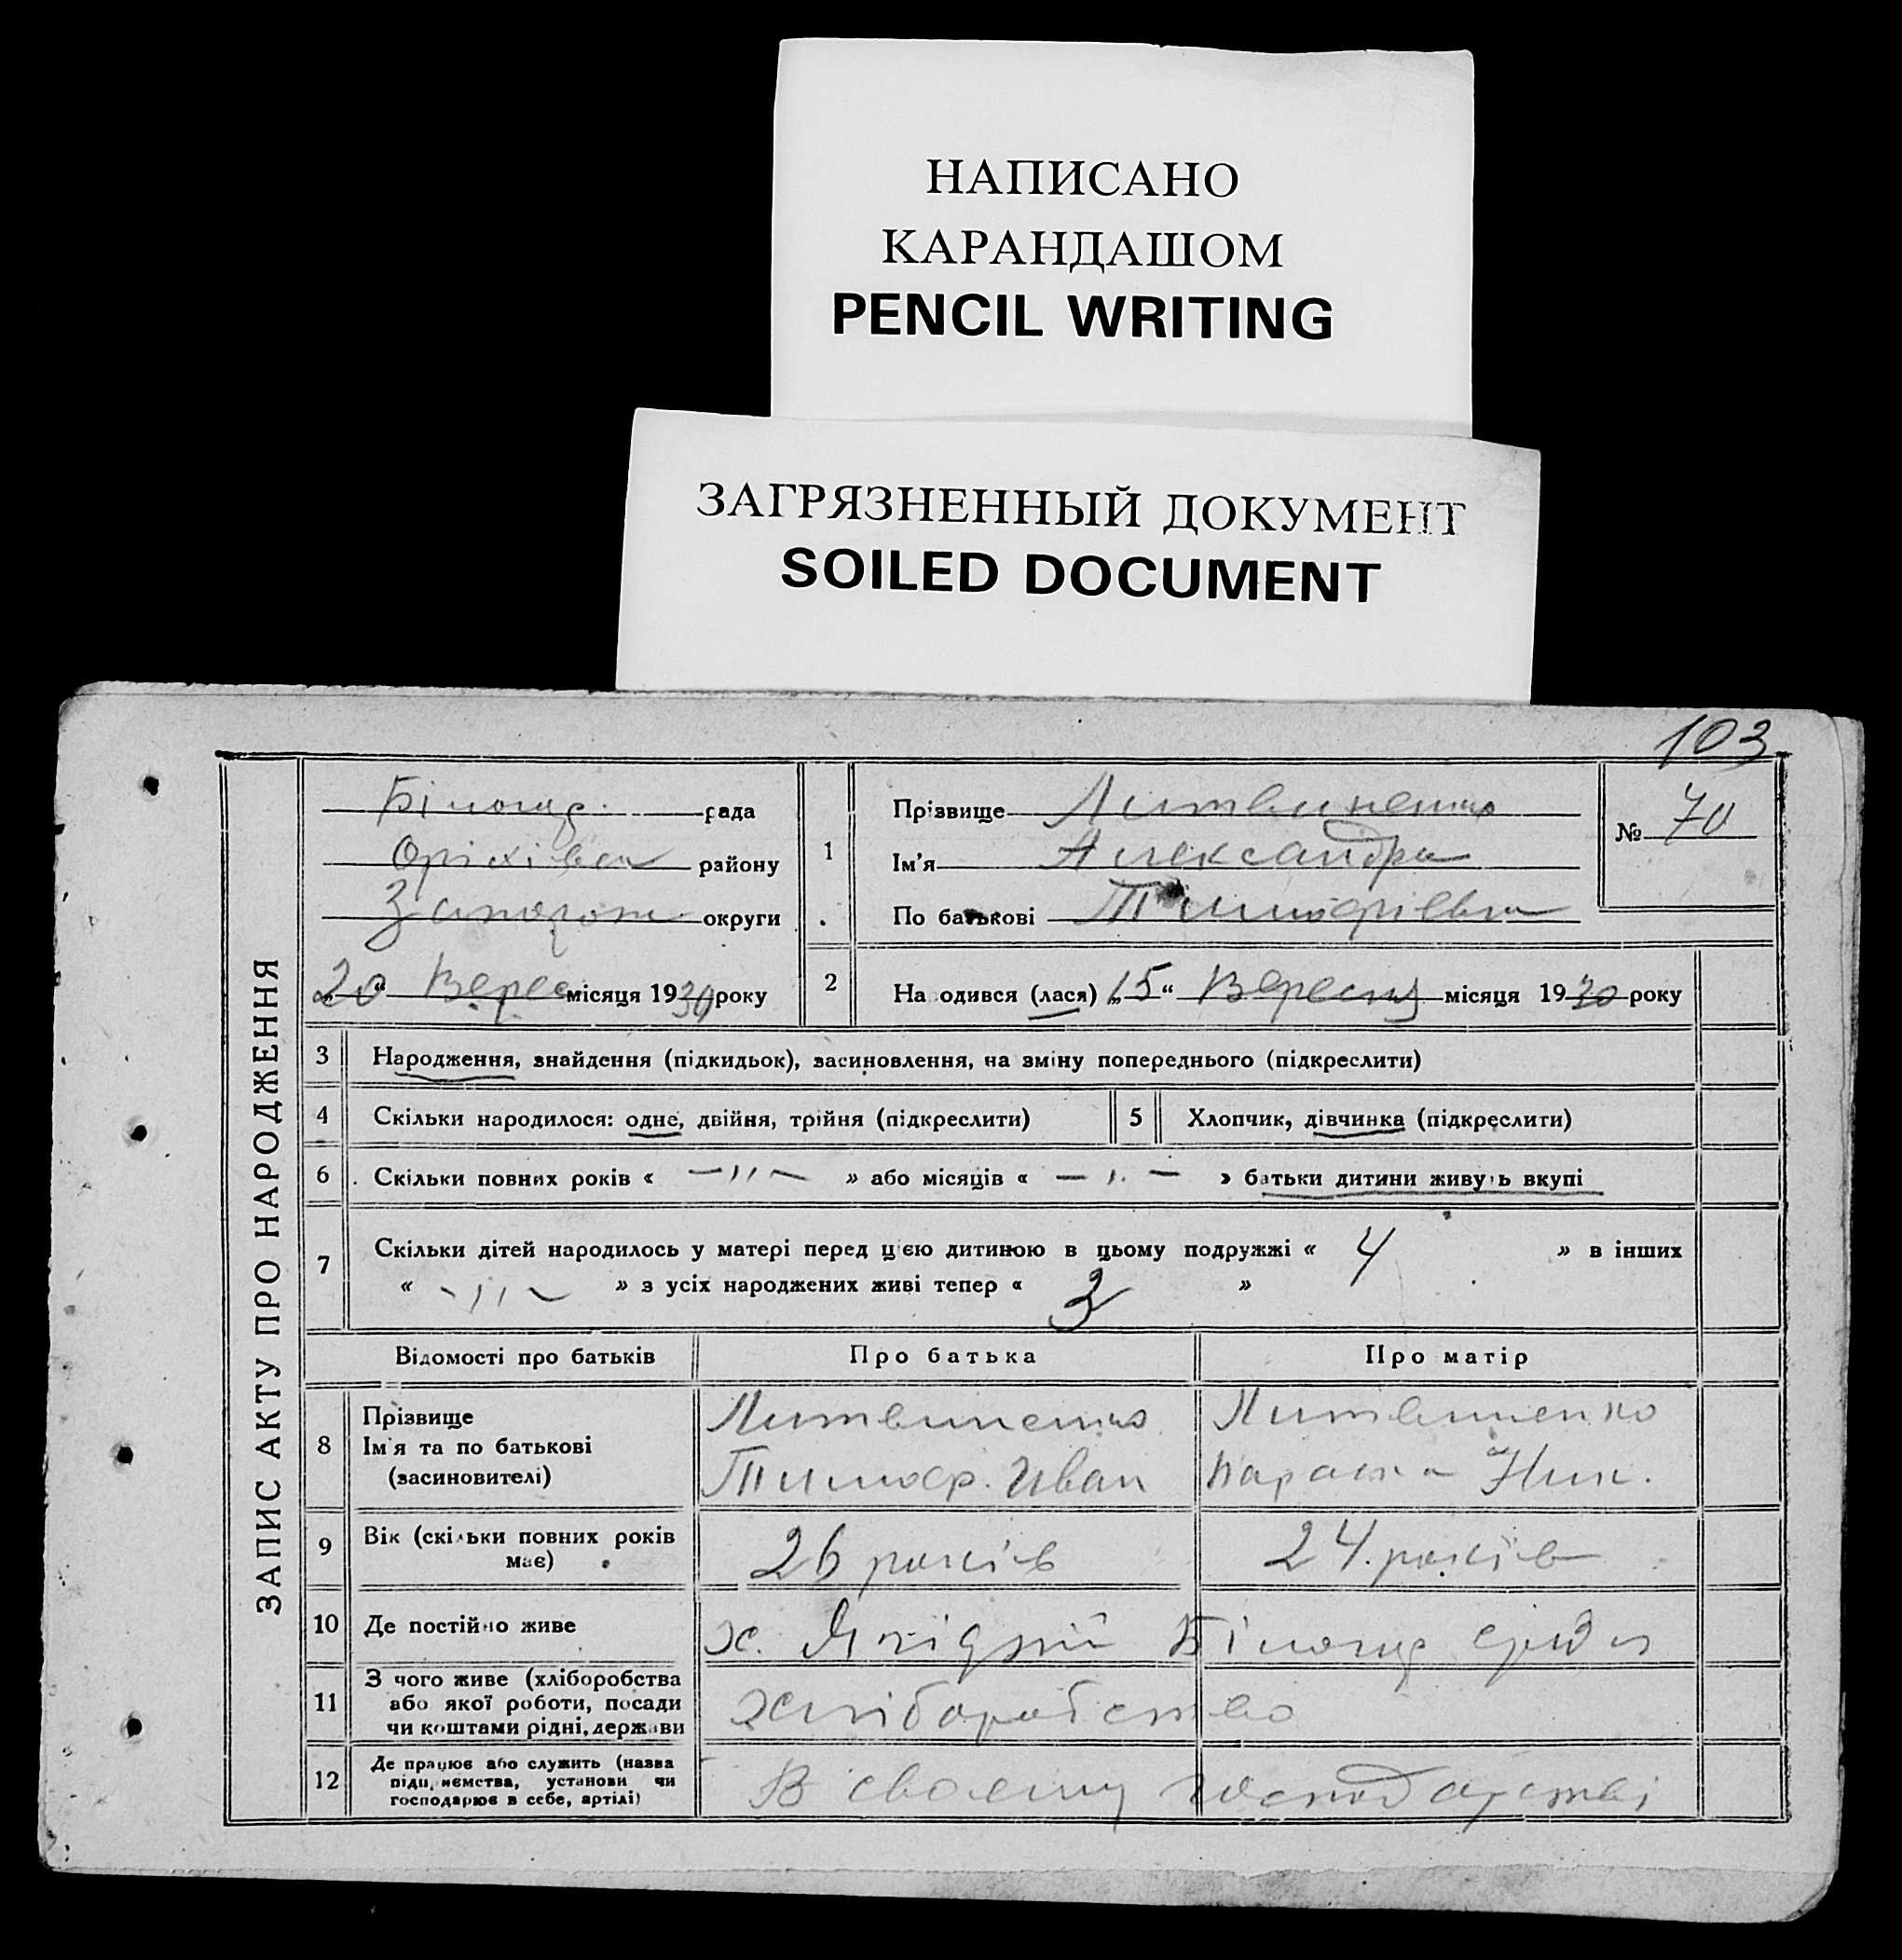 НАПИСАНО
КАРАНДАШОМ
PENCIL WRITING
ЗАГРЯЗНЕННЫЙ ДОКУМЕНТ
SOILED DOCUMENT
103
ЗАПИС АКТУ ПРО НАРОДЖЕННЯ
рада
району
округи
20 Верес місяця 1930 року
1
Прізвище Литвиненко
Ім'я Александра
По батькові Тимофіевна
№ 70
2 На одився (лася) „15“ Вересня місяця 1930 року
3 Народження, знайдення (підкидьок), засиновлення, на зміну попереднього (підкреслити)
4 Скільки народилося: одне, двійня, трійня (підкреслити) 5 Хлопчик, дівчинка (підкреслити)
6 Скільки повних років « —〃— » або місяців « —〃— » батьки дитини живуть вкупі
7 Скільки дітей народилось у матері перед цією дитиною в цьому подружжі « 4 » в інших
« —〃— » з усіх народжених живі тепер « 3 »
Відомості про батьків Про батька Про матір
8 Прізвище Литвиненко Литвиненко
Ім'я та по батькові
(засиновителі) Тимоф. Иван Параска Ник.
9 Вік (скільки повних років має) 26 років 24 років
10 Де постійно живе х.
11 З чого живе (хліборобства
або якої роботи, посади
чи коштами рідні, держави хліборобство
12 Де працює або служить (назва
підприємства, установи чи
господарює в себе, артілі) В своєму господарстві